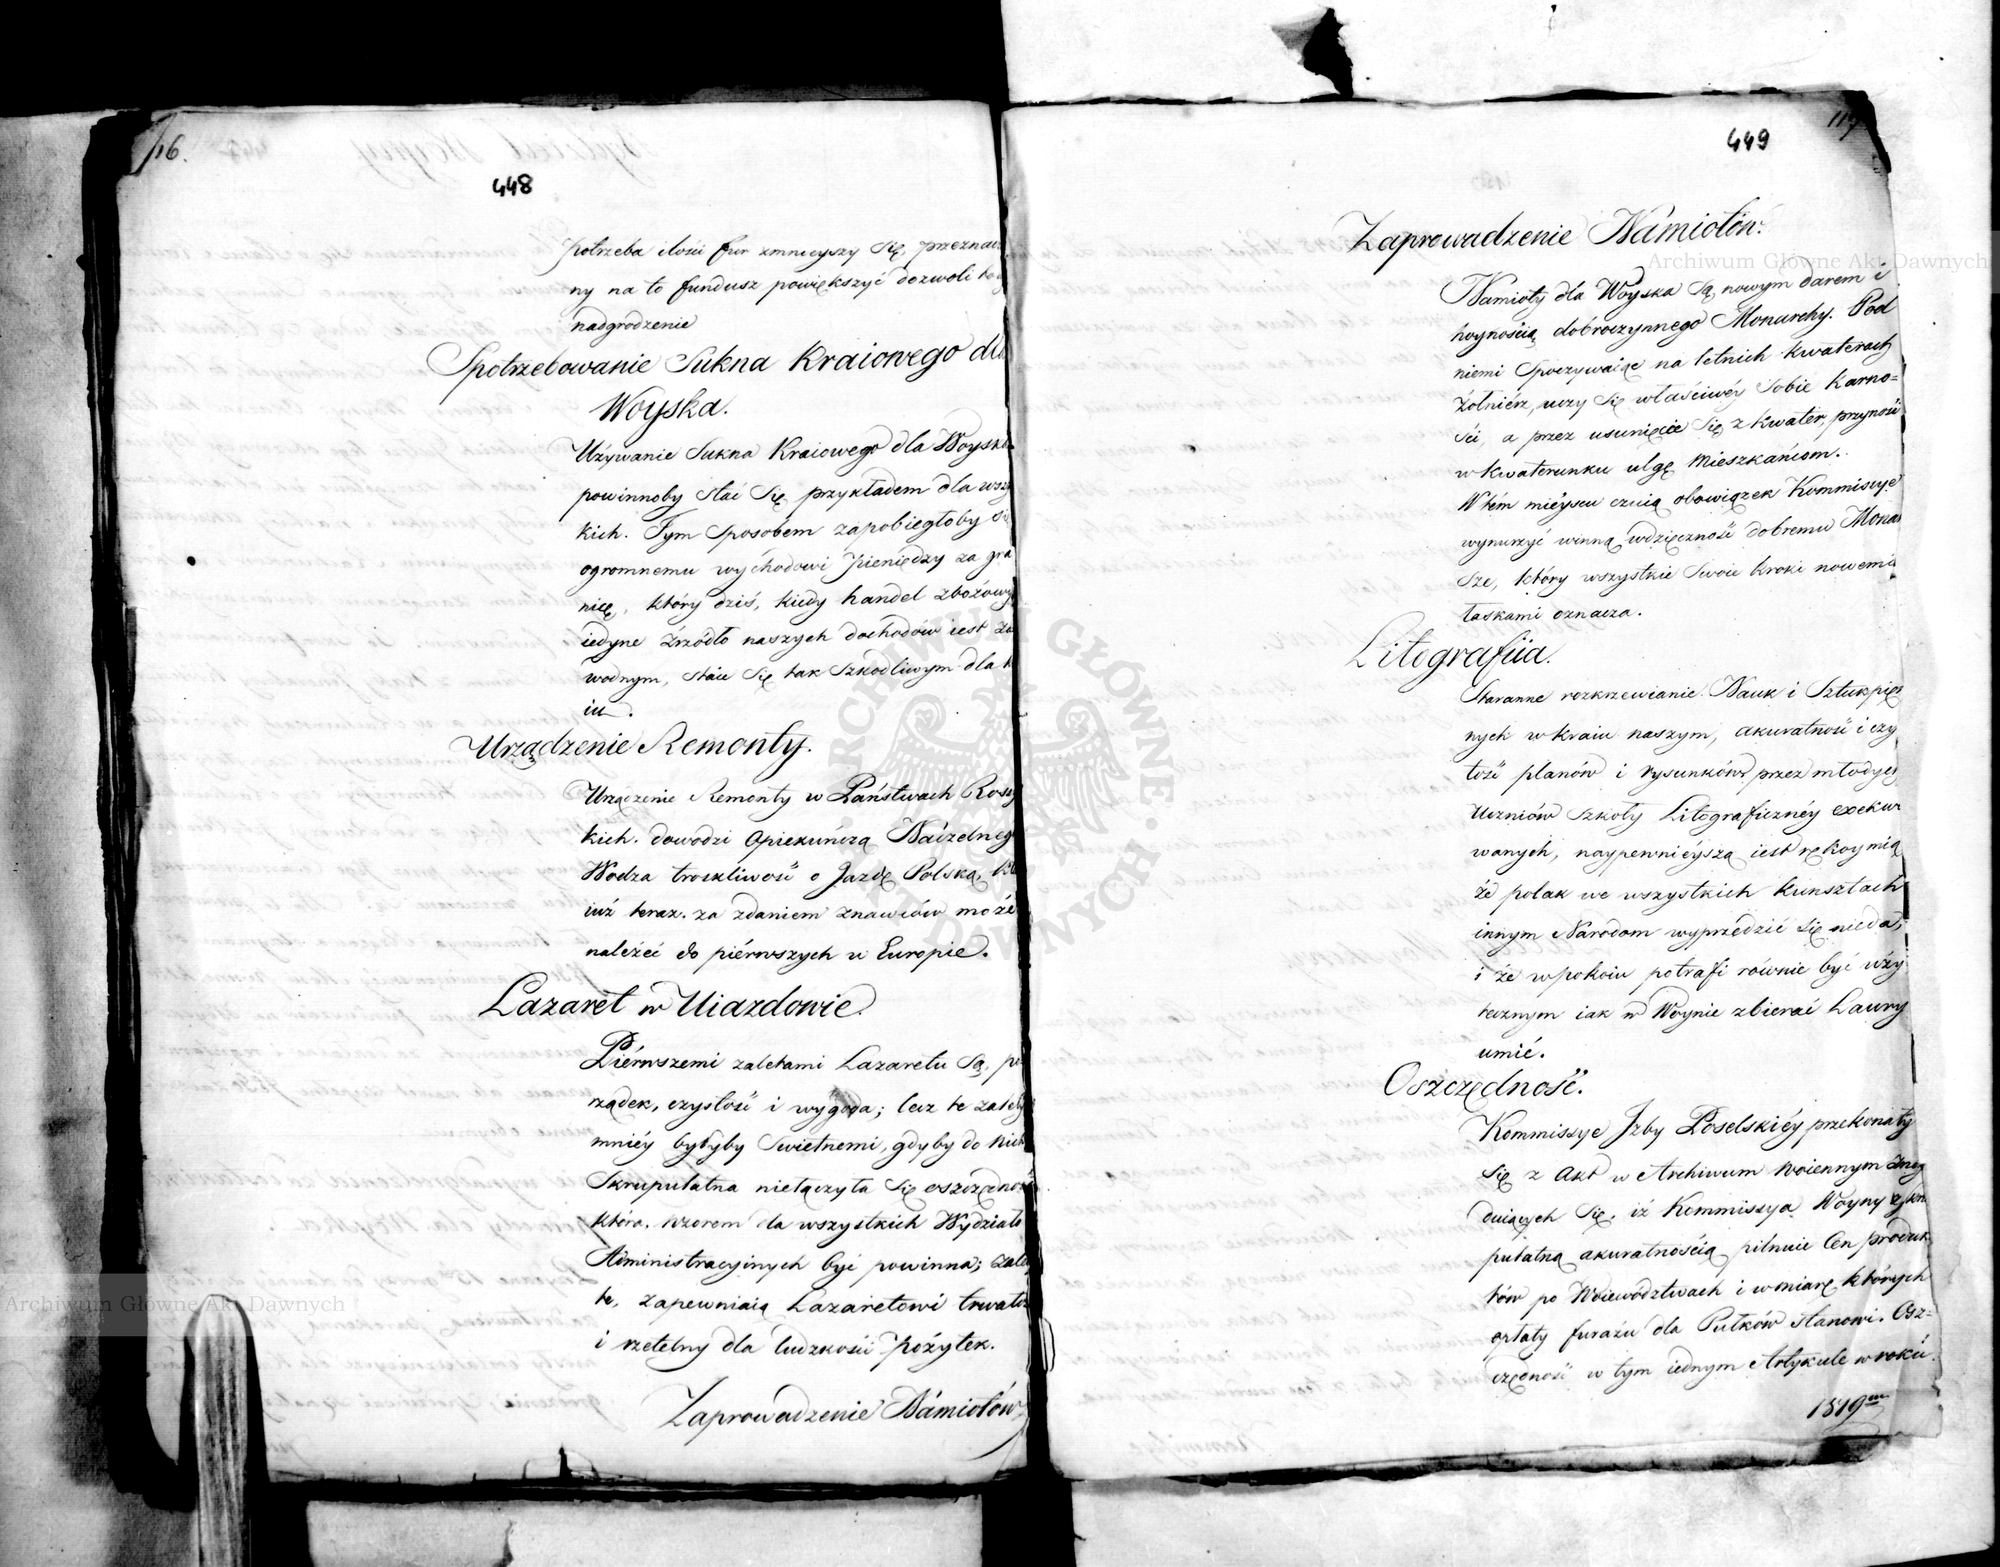 116.
448
potrzeba ilości fur zmnieyszy się, przezna
ny na to fundusz powiększyć dozwoli
nadgrodzenie
Spotrzebowanie Sukna Kraiowego dla
Woyska.
Używanie Sukna Kraiowego dla Woysk
powinnoby stać się przykładem dla wsz
kich. Tym sposobem zapobiegłoby si
ogromnemu wychodowi pieniędzy za gra
nicę, który dziś, kiedy handel zbożowy
iedyne źrzódło naszych dochodów iest za
wodnym, staie się tak szkodliwym dla k
iu.
Urządzenie Remonty.
Urządzenie Remonty w Państwach Rossy
kich. dowodzi opiekuńczą Náczelneg
Wodza troskliwość o Jazdę Polską, kt
iuż teraz. za zdaniem znawców może
należeć do piérwszych w Europie.
Lazaret w Uiazdowie.
Piérwszemi zaletami Lazaretu są, po
rządek, czystość i wygoda; lecz te zalety
mniéy byłyby świetnemi, gdyby do nich
skrupulatna niełączyła się oszczędność
która. wzorem dla wszystkich Wydziałó
Administracyinych być powinna; zalety
te, zapewniaią Lazaretowi trwały
i rzetelny dla ludzkości pożytek.
Zaprowadzenie Námiotów
117
449
Zaprowadzenie Námiotów.
Namioty dla Woyska są, nowym darem i
hoynością dobroczynnego Monarchy. Pod
niemi spoczywaiąc na letnich kwaterach
żołniérz, uczy się właściwéy sobie karno=
ści, a przez usunięcie się z kwater, przynosi
w kwaterunku ulgę Mieszkańcom.
W tém mieyscu czuią obowiązek Kommissye
wynurzyć winną wdzięczność dobremu Monar
sze, który wszystkie swoie kroki nowemi
łaskami oznacza.
Litografiia.
Staranne rozkrzewianie Nauk i Sztuk pięk
nych w kraiu naszym, akuratność i czy
tość planów i rysunków przez młodych
Uczniów Szkoły Litograficznéy exekw
wanych, naypewnieyszą iest rękoymią
że polak we wszystkich kunsztach
innym Narodom wyprzedzić się nieda,
i że w pokoiu potrafi równie być uży
tecznym iak w Woynie zbierać Laury
umié.
Oszczędność.
Kommissye Izby Poselskiéy przekonały
się z Akt w Archiwum Woiennym znay
duiących się, iż Kommissya Woyny z skru
pulatną akuratnością pilnuie Cen produk
tów po Woiewództwach i w miarę których
opłaty furażu dla Pułków stanowi. Osz=
czędność w tym iednym Artykule w roku
1819ym
Archiwum Główne Akt Dawnych
Archiwum Główne Akt Dawnych
ARCHIWUM GŁÓWNE AKT DAWNYCH